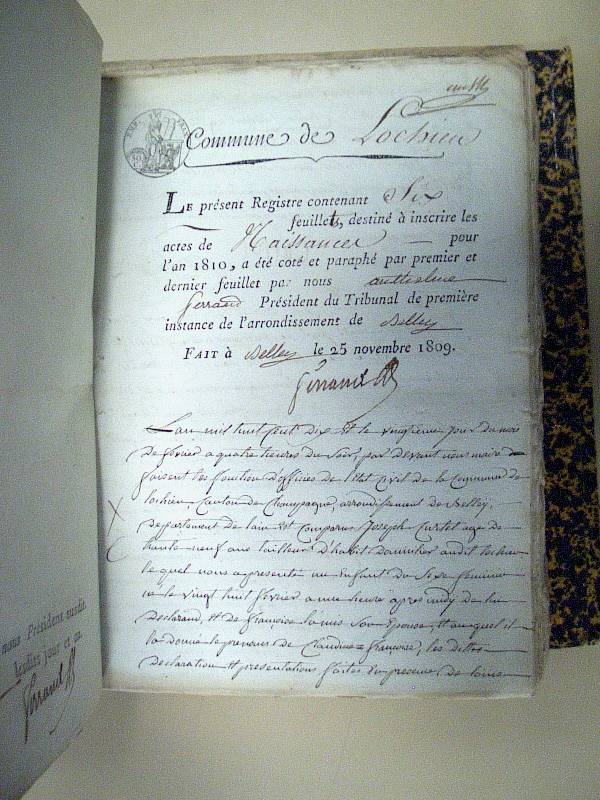 Commune de Lochieu
LE présent Registre contenant Six
feuillets, destiné à inscrire les
actes de Naissances pour
l'an 1810, a été coté et paraphé par premier et
dernier feuillet par nous anthelme
ferrand Président du Tribunal de première
instance de l'arrondissement de Belley
FAIT à Belley le 25 novembre 1809.
ferrand
L'an mil huit cent dix et le vingtieme jour du mois
De fevrier a quatre heures du soir, par devant nous maire
faisant les fonction d'officier de l'Etat Civil de la Commune de
lochieu, Canton de Champagne, arrondissement de Belley,
Departement de lain est Comparus Joseph Curtet age de
trente neuf ans tailleur d'habit audit lochieu
lequel nous a presenté un Enfant du Sexe feminin
ne le vingt huit fevrier a une heure après midy de lui
Declarand, et de françoise Son Epouse, et auquel il
la donné le prenoms de Claudine françoise, les dittes
Declaration et presentations faites En presence de
nous Président susdit
lesdits jour et an
ferrand